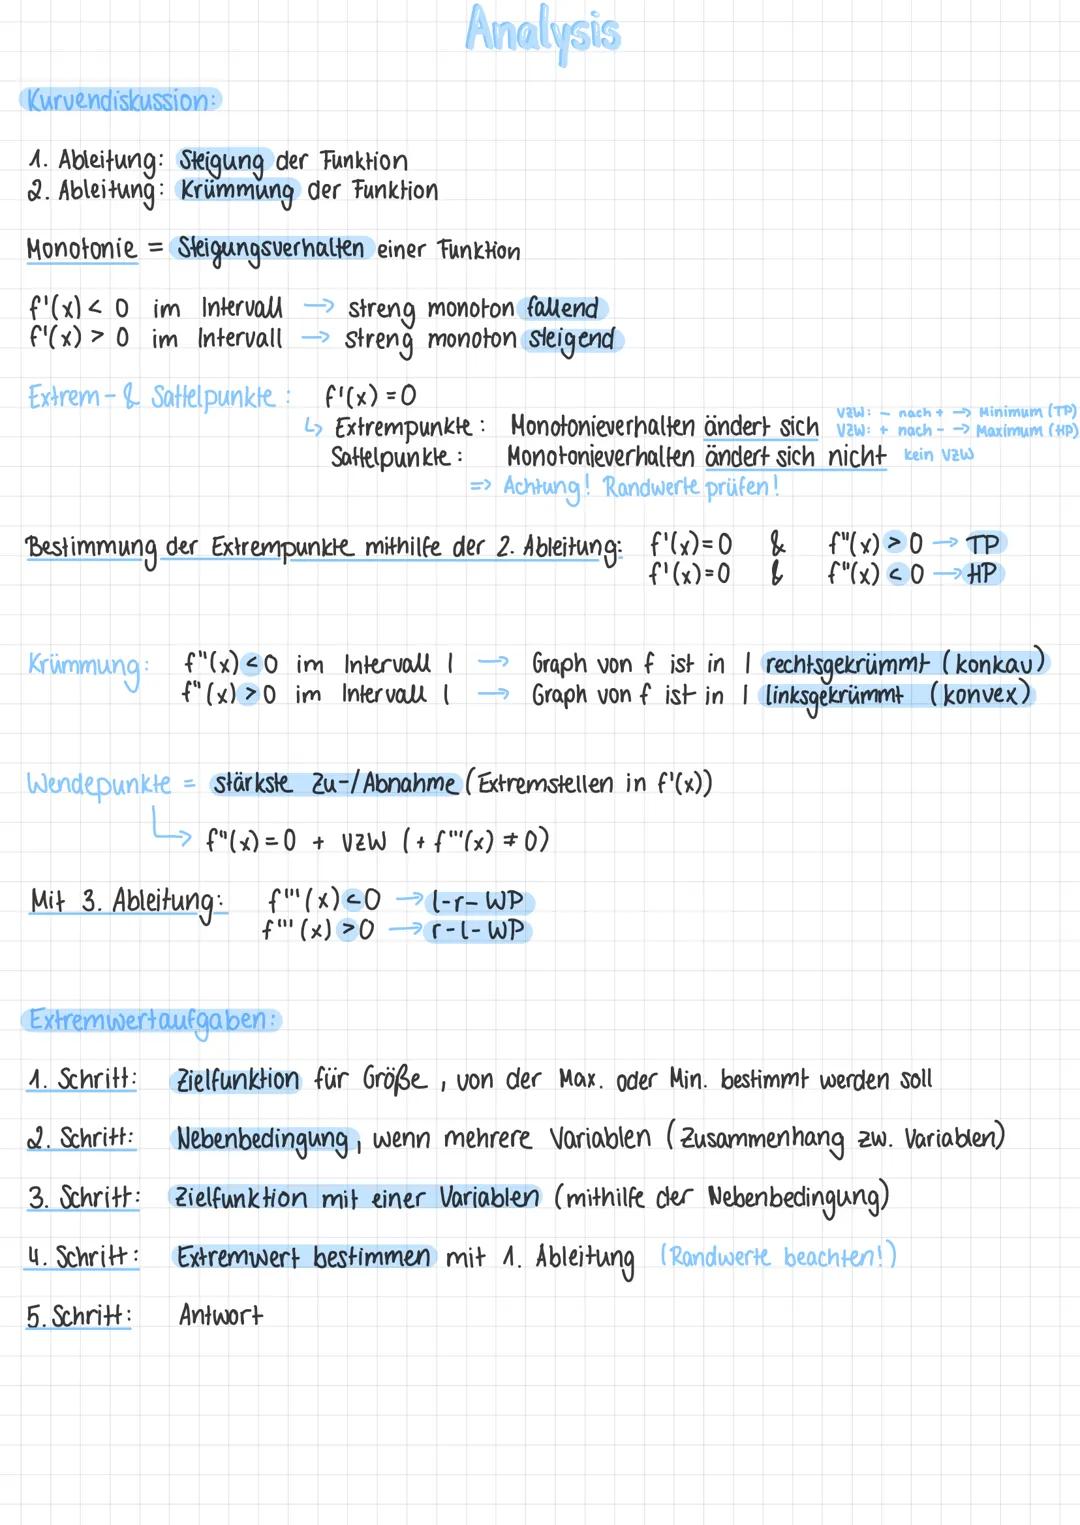 Analysis
Kurvendiskussion:
1. Ableitung: Steigung der Funktion
2. Ableitung: Krümmung der Funktion
Monotonie = Steigungsverhalten einer Funktion
f'(x) < 0 im Intervall → streng monoton fallend
f'(x) > 0 im Intervall → streng monoton steigend
Extrem- & Sattelpunkte: f'(x) = 0
↳ Extrempunkte: Monotonieverhalten ändert sich VZW: - nach + → Minimum (TP)
VZW: + nach - → Maximum (HP)
Sattelpunkte: Monotonieverhalten ändert sich nicht kein VZW
=> Achtung! Randwerte prüfen!
Bestimmung der Extrempunkte mithilfe der 2. Ableitung: f'(x)=0 & f''(x) > 0 → TP
f'(x)=0 & f''(x) < 0 → HP
Krümmung: f''(x) < 0 im Intervall I → Graph von f ist in I rechtsgekrümmt (konkav)
f''(x) > 0 im Intervall I → Graph von f ist in I linksgekrümmt (konvex)
Wendepunkte = stärkste Zu-/Abnahme (Extremstellen in f'(x))
↳ f''(x) = 0 + VZW (+ f'''(x) ≠ 0)
Mit 3. Ableitung: f'''(x) < 0 → l-r-WP
f'''(x) > 0 → r-l-WP
Extremwertaufgaben:
1. Schritt: Zielfunktion für Größe, von der Max. oder Min. bestimmt werden soll
2. Schritt: Nebenbedingung, wenn mehrere Variablen (Zusammenhang zw. Variablen)
3. Schritt: Zielfunktion mit einer Variablen (mithilfe der Nebenbedingung)
4. Schritt: Extremwert bestimmen mit 1. Ableitung (Randwerte beachten!)
5. Schritt: Antwort